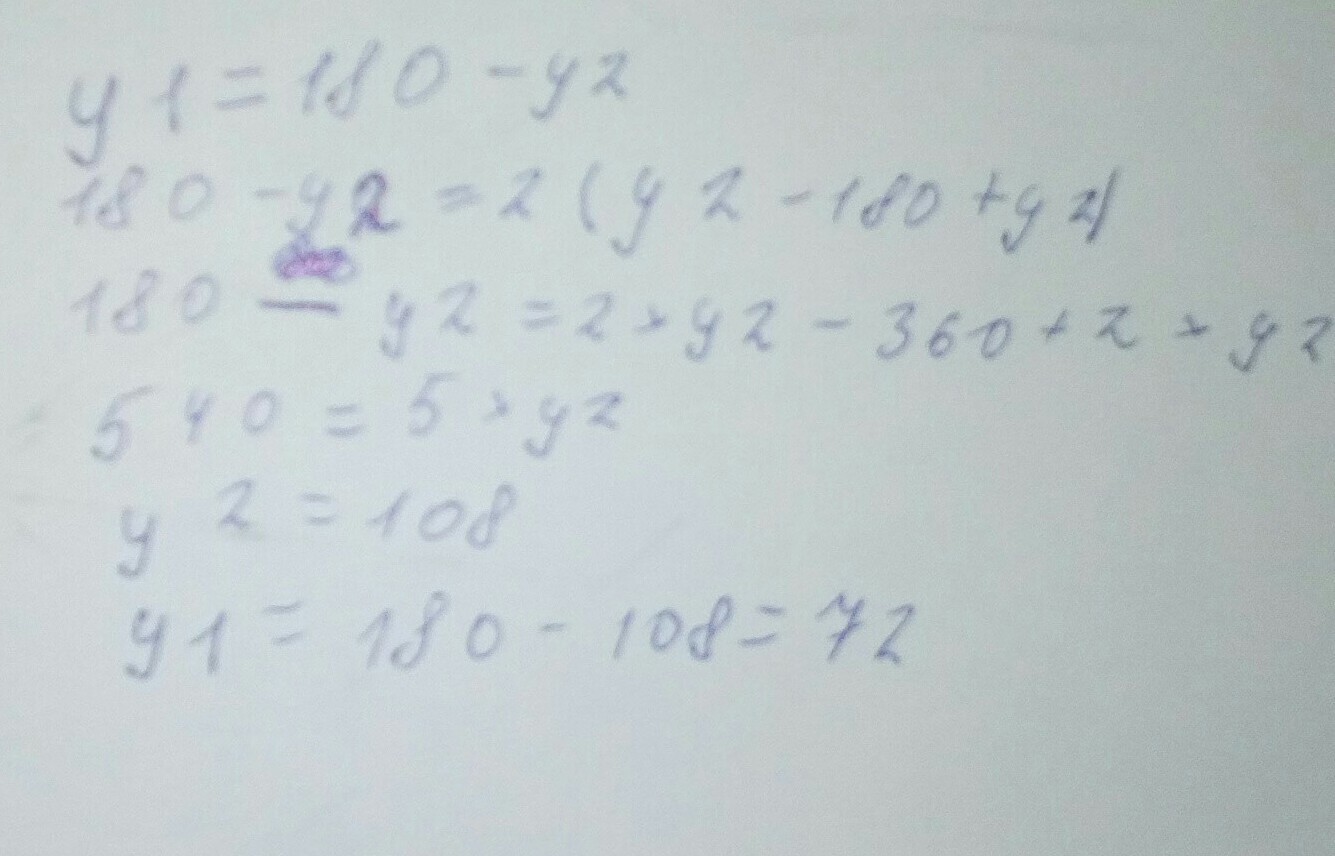 y1=180-y2
180-y2=2(y2-180+y2)
180-y2=2*y2-360+2*y2
540=5*y2
y2=108
y1=180-108=72